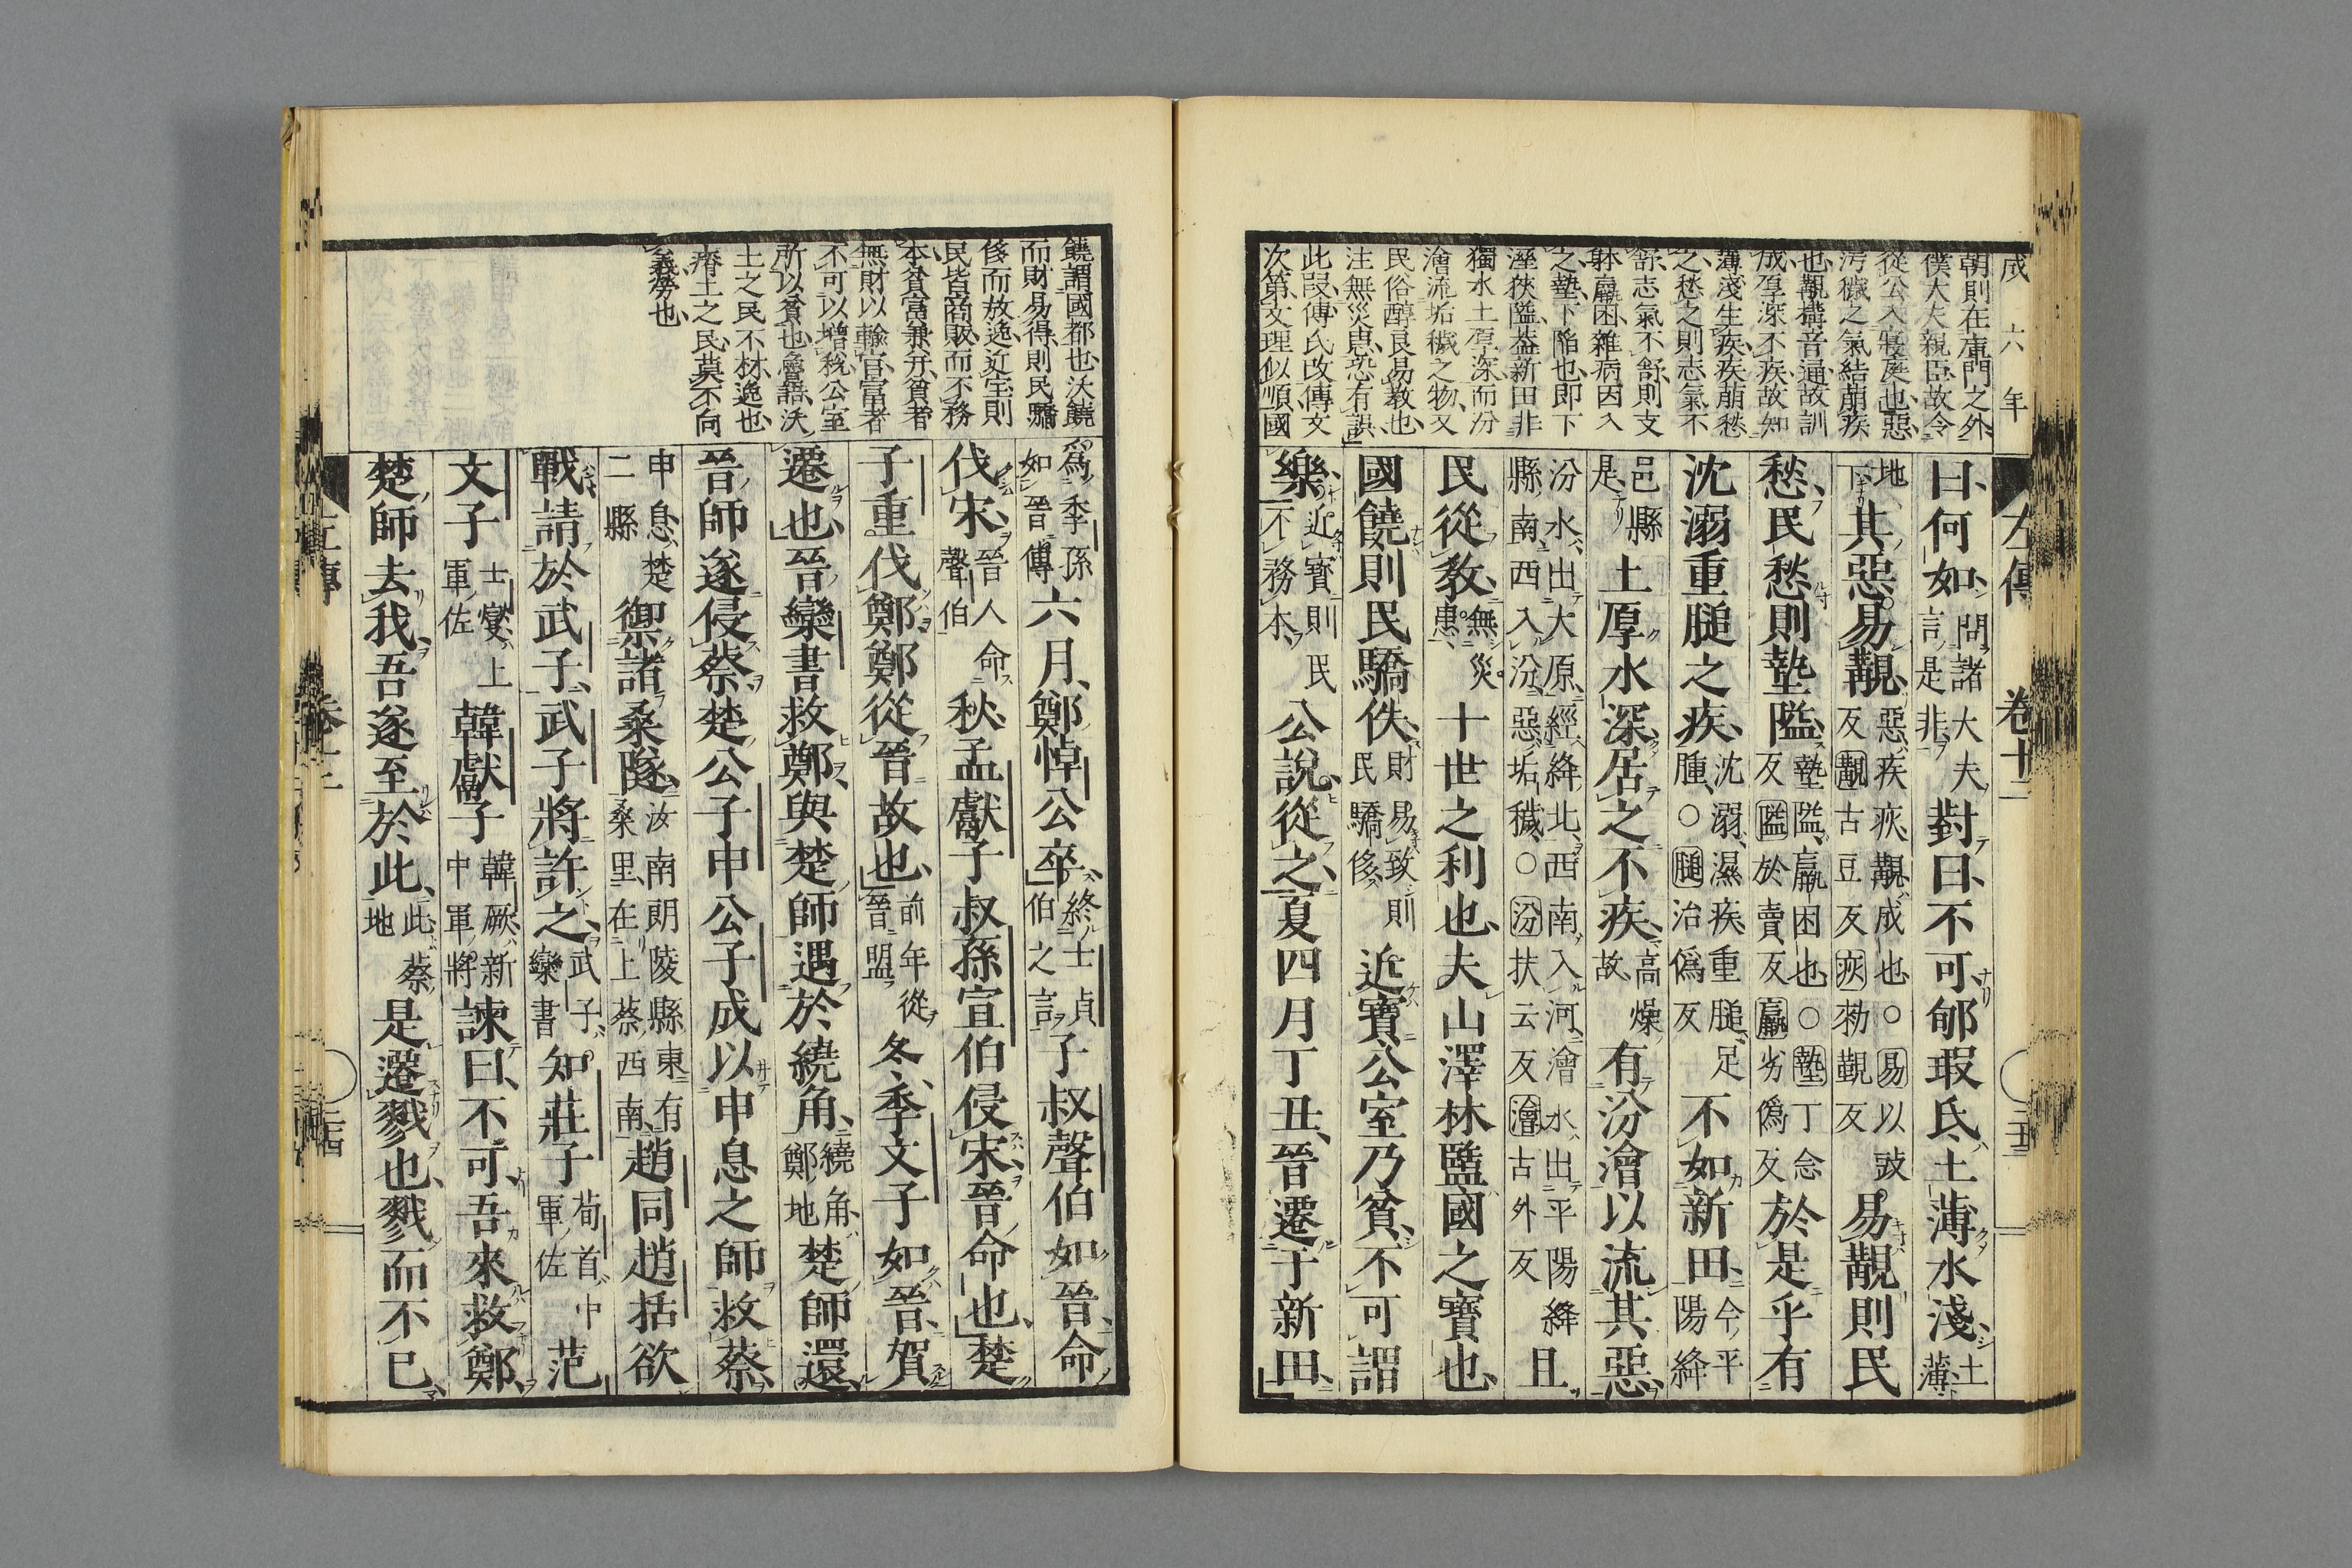 成六年
朝則在庫門之外
僕大夫親臣故令
從公入寢庭也惡
汚穢之氣結萠疾
也覯構音通故訓
成厚深不疾故如
薄淺生疾疾萠愁
之愁之則志氣不
舒志氣不舒則支
躰羸困雜病因入
之墊下陷也即下
溼狹隘蓋新田非
獨水土厚深而汾
澮流垢穢之物又
民俗醇良易教也
注無災患恐有誤
此段傳氏改傳文
次第文理似順國
左傳 卷十二
曰何如問諸大夫言是非對曰不可郇瑕氏土薄水淺土薄
地下其惡易覯惡疾疢覯成也○易以豉反覯古豆反疢勑覲反易覯則民
愁民愁則墊隘墊隘羸困也○墊丁念反隘於賣反羸劣僞反於是乎有
沈溺重膇之疾沈溺濕疾重膇足腫○膇治僞反不如新田今平陽絳
邑縣是土厚水深居之不疾高燥故有汾澮以流其惡
汾水出大原經絳北西南入河澮水出平陽絳縣南西入汾惡垢穢○汾扶云反澮古外反且
民從教無災患十世之利也夫山澤林盬國之寶也
國饒則民驕佚財易致則民驕侈近寶公室乃貧不可謂
樂近寶則民不務本公說從之夏四月丁丑晉遷于新田
饒謂國都也沃饒
而財易得則民驕
侈而放逸近宝則
民皆商販而不務
本貧富兼并貧者
無財以輸官富者
不可以增稅公室
所以貧也魯語沃
土之民不材逸也
瘠土之民莫不向
義勞也
爲季孫如晉傳六月鄭悼公卒終士貞伯之言子叔聲伯如晉命
伐宋晉人命聲伯秋孟獻子叔孫宣伯侵宋晉命也楚
子重伐鄭鄭從晉故也前年從晉盟冬季文子如晉賀
遷也晉欒書救鄭與楚師遇於繞角繞角鄭地楚師還
晉師遂侵蔡楚公子申公子成以申息之師救蔡
申息楚二縣禦諸桑隧汝南朗陵縣東有桑里在上蔡西南趙同趙括欲
戰請於武子武子將許之武子欒書知莊子荀首中軍佐范
文子士燮上軍佐韓獻子韓厥新中軍將諫曰不可吾來救鄭
楚師去我吾遂至於此此蔡地是遷戮也戮而不已